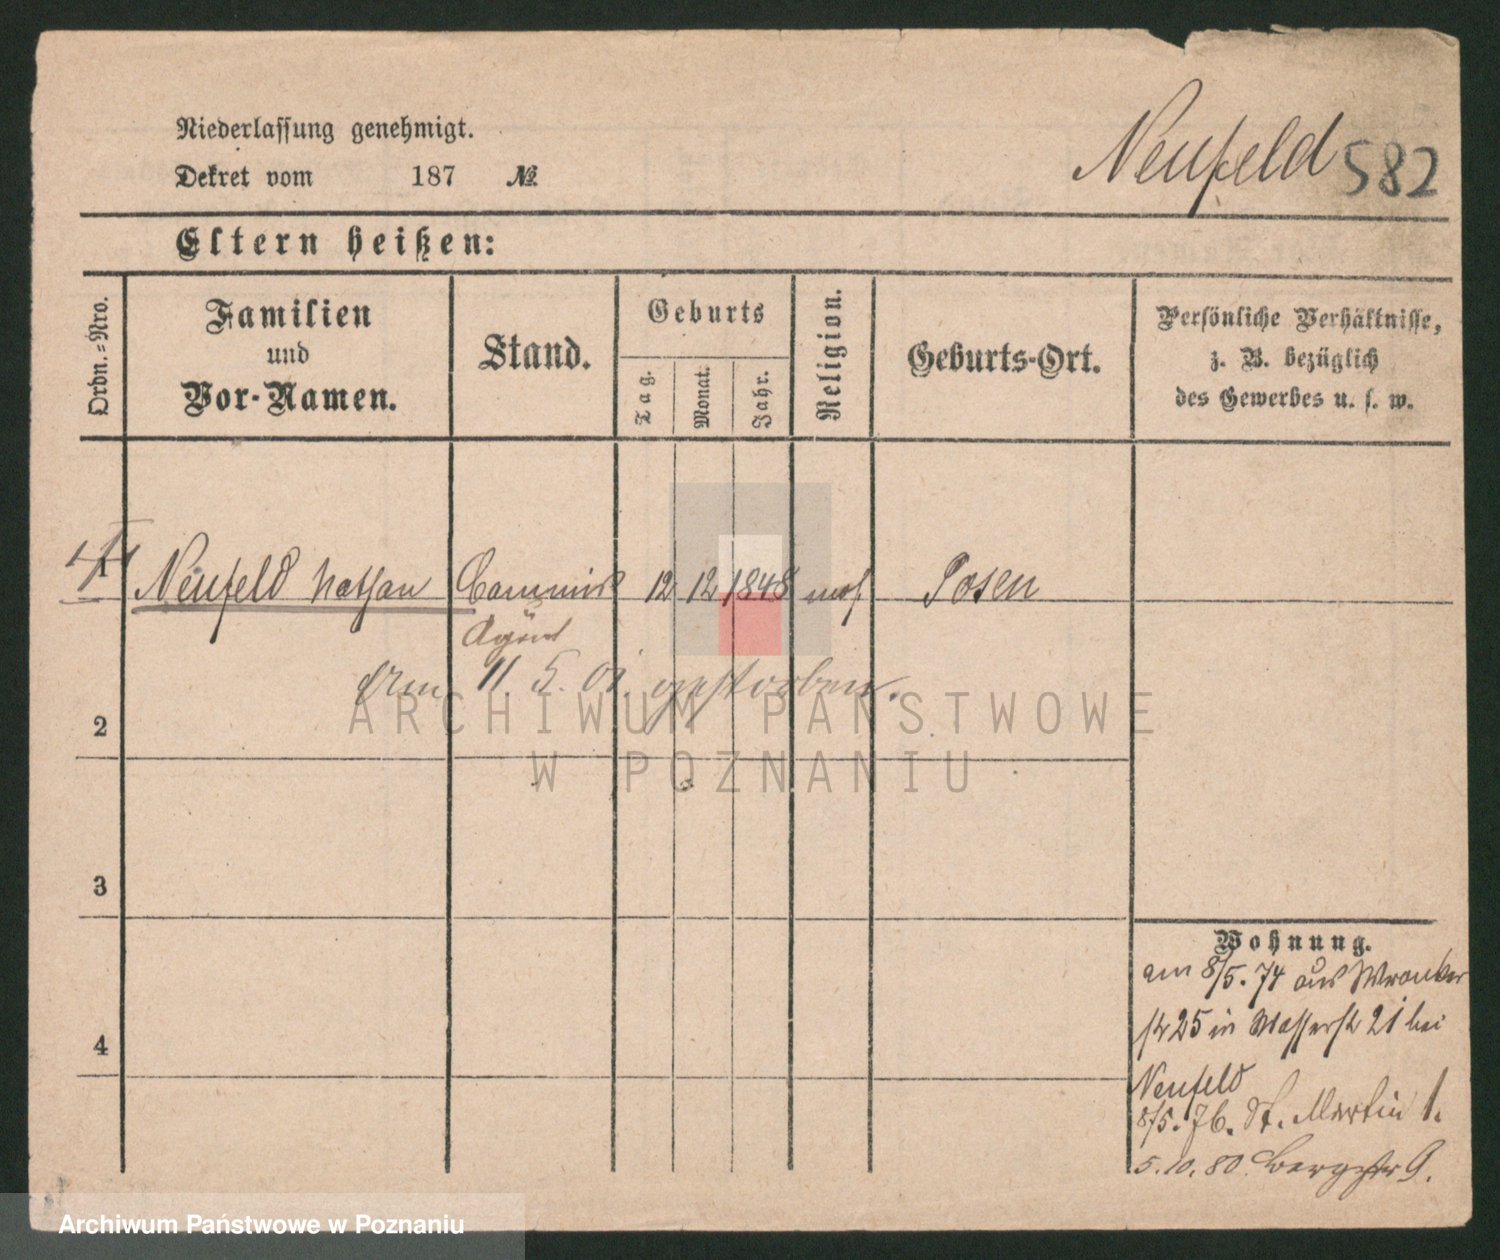 Niederlassung genehmigt.
Dekret vom 187 №
Neufeld 582
Eltern heißen:
Ordn.-Nro.
Familien
und
Vor-Namen.
Stand.
Geburts
Tag.
Monat.
Jahr.
Religion.
Geburts-Ort.
Persönliche Verhältnisse,
z. B. bezüglich
des Gewerbes u. s. w.
1 Neufeld Nathan Commis 12 12 1848 mos. Posen
Agent
am 11. 5. 01. gestorben.
2
3
4
Wohnung.
am 8/5. 74 aus Wronker
str 25 in Wasserstr 21 bei
Neufeld
8/5. 76. St. Martin 1.
5. 10. 80. Bergstr 9.
ARCHIWUM PAŃSTWOWE
W POZNANIU
Archiwum Państwowe w Poznaniu